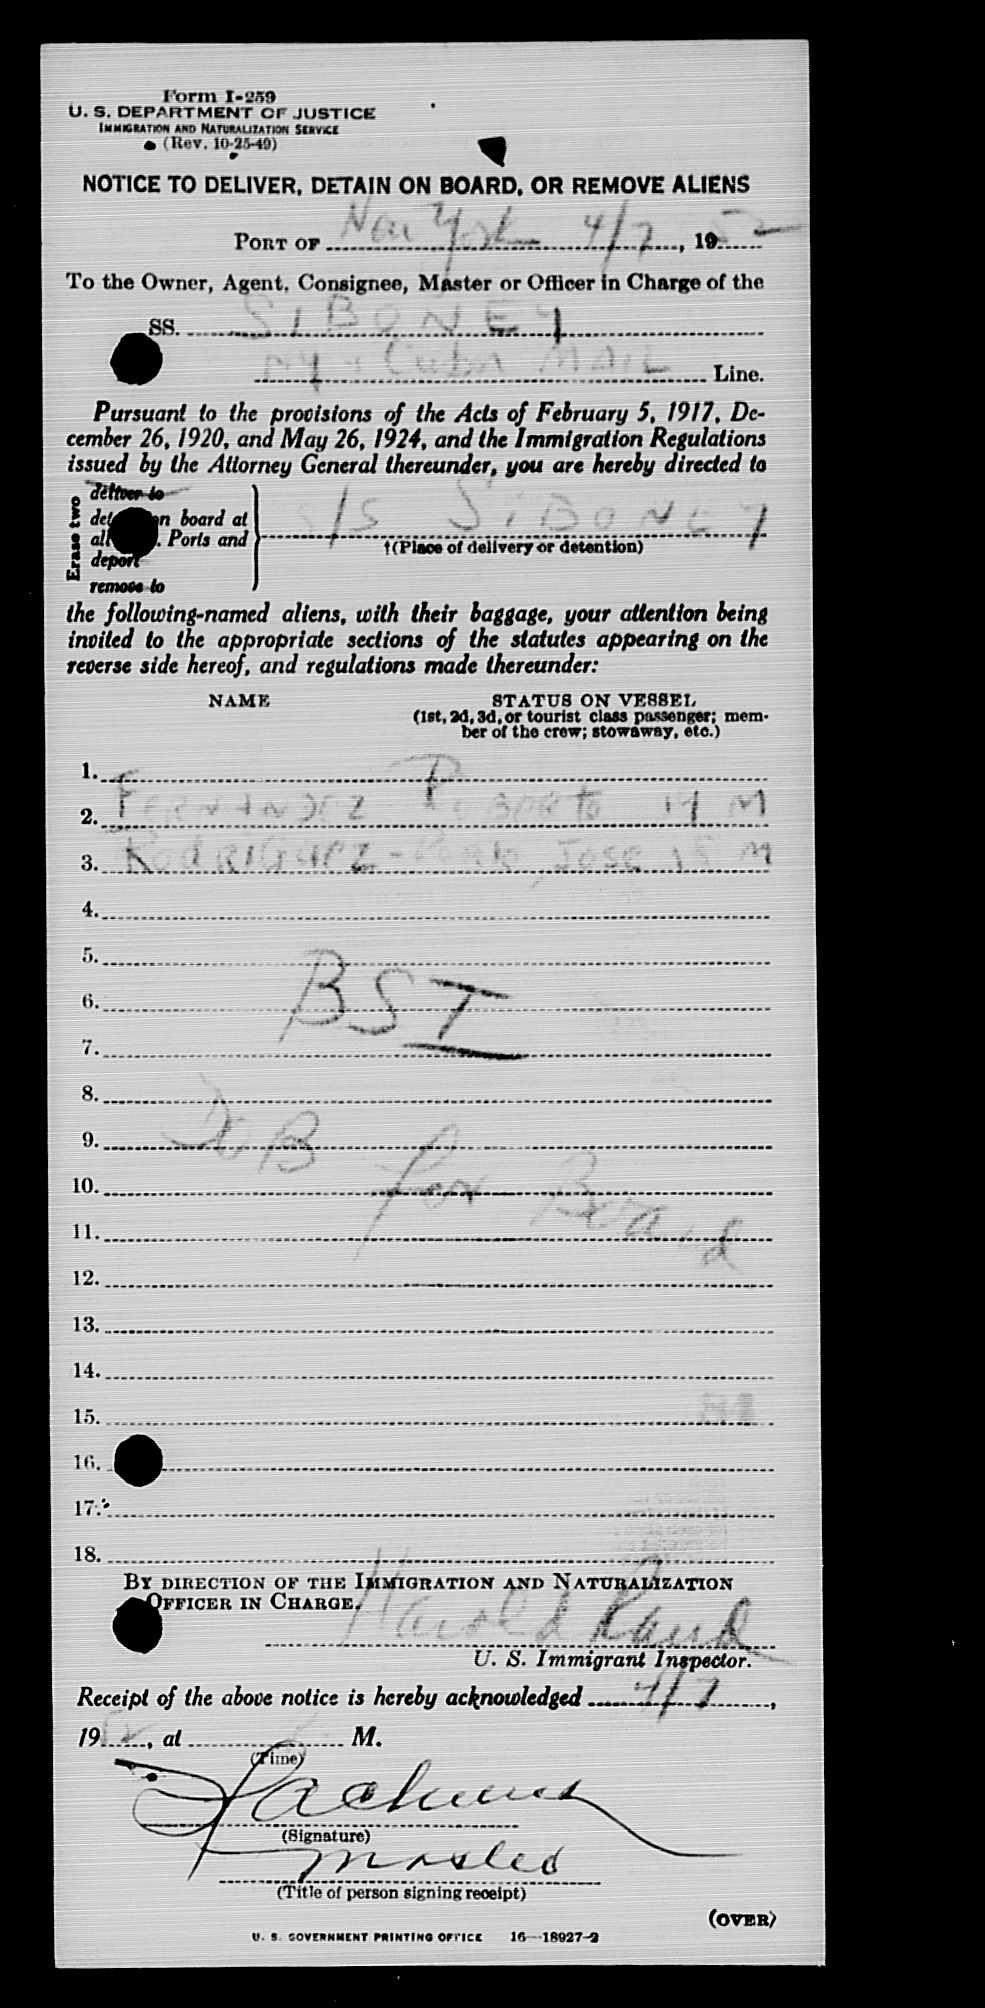 Form I-259
U. S. DEPARTMENT OF JUSTICE
IMMIGRATION AND NATURALIZATION SERVICE
(Rev. 10-25-49)
NOTICE TO DELIVER, DETAIN ON BOARD, OR REMOVE ALIENS
PORT OF New York 4/7, 1952
To the Owner, Agent, Consignee, Master or Officer in Charge of the
SS. SIBONEY
NY & Cuba MAIL Line.
Pursuant to the provisions of the Acts of February 5, 1917, De-
cember 26, 1920, and May 26, 1924, and the Immigration Regulations
issued by the Attorney General thereunder, you are hereby directed to
Erase two
deliver to
board at
Ports and
deport
remove to
S/S SIBONEY
†(Place of delivery or detention)
the following-named aliens, with their baggage, your attention being
invited to the appropriate sections of the statutes appearing on the
reverse side hereof, and regulations made thereunder:
NAME STATUS ON VESSEL
(1st, 2d, 3d, or tourist class passenger; mem-
ber of the crew; stowaway, etc.)
1.
2. FERNANDEZ M
3. RODRIGUEZ- JOSE M
4.
5.
6. BSI
7.
8.
9. DOB
10. for Board
11.
12.
13.
14.
15.
16.
17.
18.
BY DIRECTION OF THE IMMIGRATION AND NATURALIZATION
OFFICER IN CHARGE.
Harold Rand
U. S. Immigrant Inspector.
Receipt of the above notice is hereby acknowledged 4/7,
1952, at M.
(Time)
(Signature)
(Title of person signing receipt)
(OVER)
U. S. GOVERNMENT PRINTING OFFICE 16—18927-2